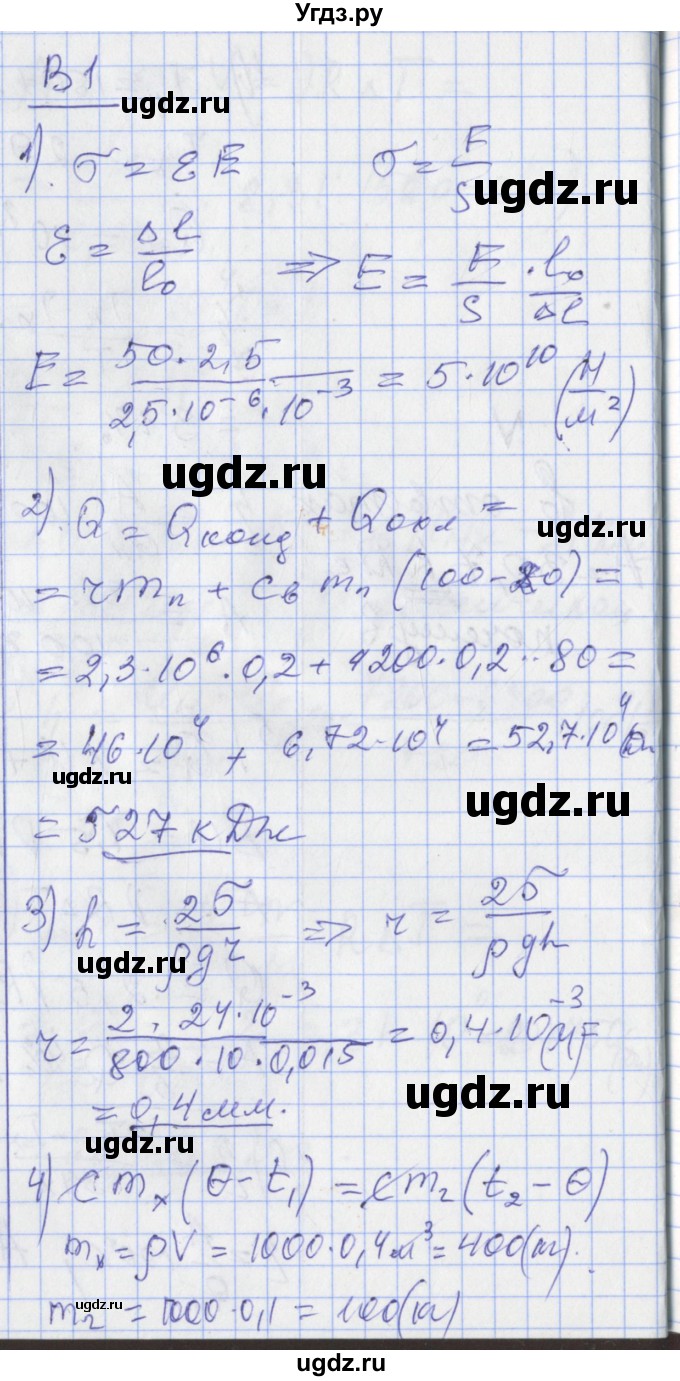 Угдз.ру
В1
ugdz.ru
1). σ = εE σ = F/S
ugdz.ru
ε = Δl/l₀ ⇒ E = F/S · l₀/Δl
E = 50·2,5 / 2,5·10⁻⁶·10⁻³ = 5·10¹⁰ (Н/м²)
ugdz.ru
2). Q = Qконд + Qохл =
ugdz.ru
= rmп + cвmп (100-20) =
= 2,3·10⁶·0,2 + 4200·0,2··80 =
= 46·10⁴ + 6,72·10⁴ = 52,7·10⁴
ugdz.ru
ugdz.ru
= 527 кДж
3) h = 2σ/ρgr ⇒ r = 2σ/ρgh
ugdz.ru
r = 2·24·10⁻³ / 800·10·0,015 = 0,4·10⁻³(м)=
ugdz.ru
= 0,4 мм.
ugdz.ru
4) cmх(θ-t₁) = cm₂(t₂-θ)
mх = ρV = 1000·0,4м³ = 400(кг).
ugdz.ru
m₂ = 1000·0,1 = 100(кг)
ugdz.ru